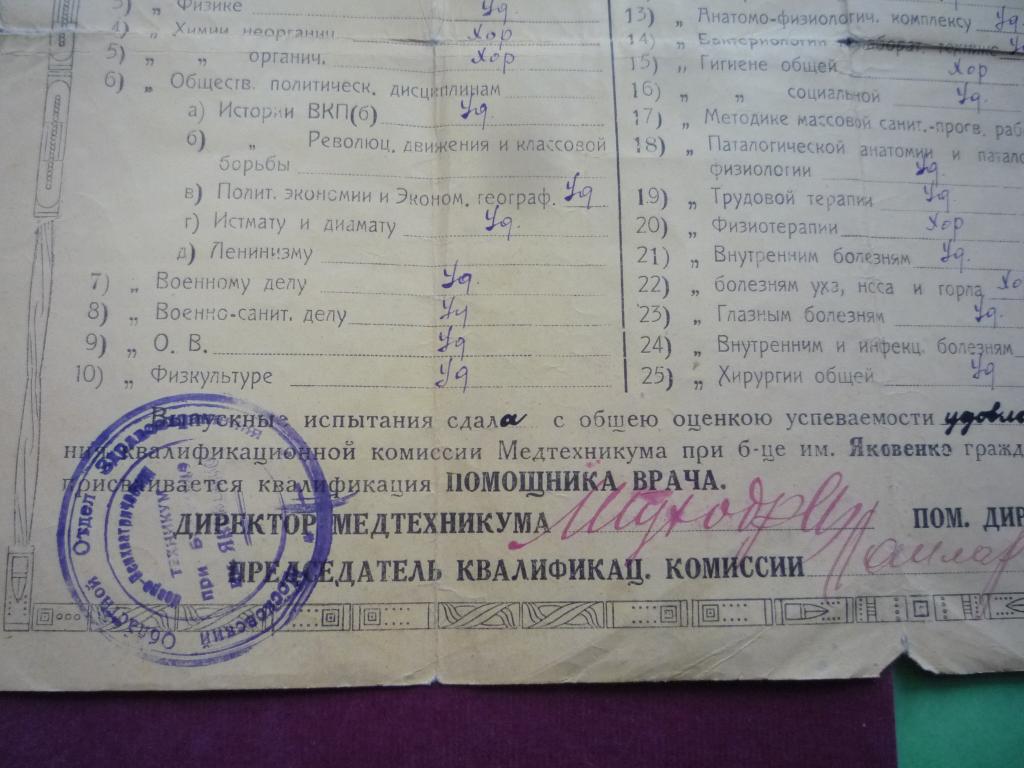 3) „ Физике Уд.
4) „ Химии неорганич. Хор
5) „ „ органич. Хор
6) „ Обществ. политическ. дисциплинам
а) Истории ВКП(б) Уд.
б) „ Революц. движения и классовой
борьбы
в) Полит. экономии и Эконом. географ. Уд
г) Истмату и диамату Уд.
д) Ленинизму
7) „ Военному делу Уд.
8) „ Военно-санит. делу Уд
9) „ О. В. Уд
10) „ Физкультуре Уд
13) „ Анатомо-физиологич. комплексу Уд.
14) „ Бактериологии
15) „ Гигиене общей Хор
16) „ „ социальной Уд.
17) „ Методике массовой санит.-просв. раб
18) „ Паталогической анатомии и патало
физиологии Уд.
19) „ Трудовой терапии Уд.
20) „ Физиотерапии Хор
21) „ Внутренним болезням Уд.
22) „ болезням уха, носа и горла Хо
23) „ Глазным болезням Уд.
24) „ Внутренним и инфекц. болезням
25) „ Хирургии общей Уд
Выпускные испытания сдала с общею оценкою успеваемости удовле
ния квалификационной комиссии Медтехникума при б-це им. Яковенко гражд
присваивается квалификация ПОМОЩНИКА ВРАЧА.
ДИРЕКТОР МЕДТЕХНИКУМА ПОМ. ДИР
ПРЕДСЕДАТЕЛЬ КВАЛИФИКАЦ. КОМИССИИ
Московский Областной Отдел Здравоохранения
ТЕХНИКУМ
при Б